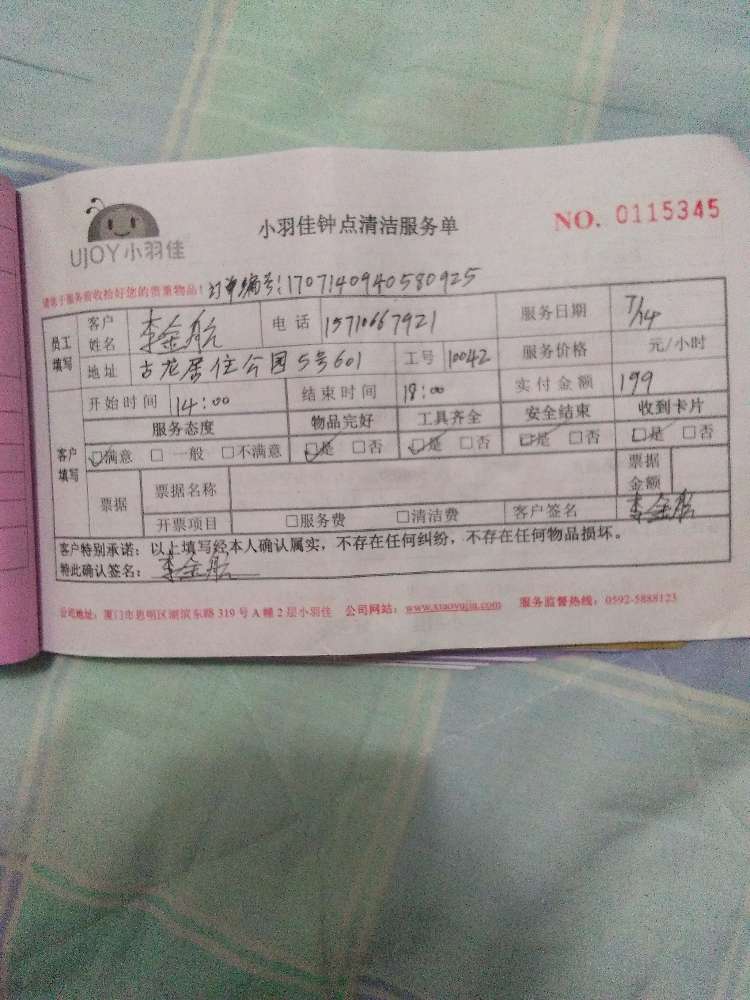 UJOY小羽佳
小羽佳钟点清洁服务单
NO. 0115345
请您于服务前收拾好您的贵重物品! 订单编号:1707140940580925
员工填写 客户姓名 李金航 电话 15710667921 服务日期 7/14
地址 古龙居住公园5号601 工号 10042 服务价格 元/小时
开始时间 14:00 结束时间 18:00 实付金额 199
客户填写 服务态度 物品完好 工具齐全 安全结束 收到卡片
☑满意 □一般 □不满意 ☑是 □否 ☑是 □否 ☑是 □否 ☑是 □否
票据 票据名称 票据金额
开票项目 □服务费 □清洁费 客户签名 李金航
客户特别承诺:以上填写经本人确认属实,不存在任何纠纷,不存在任何物品损坏。
特此确认签名:李金航
公司地址:厦门市思明区湖滨东路319号A幢2层小羽佳 公司网站:www.xiaoyujia.com 服务监督热线:0592-5888123